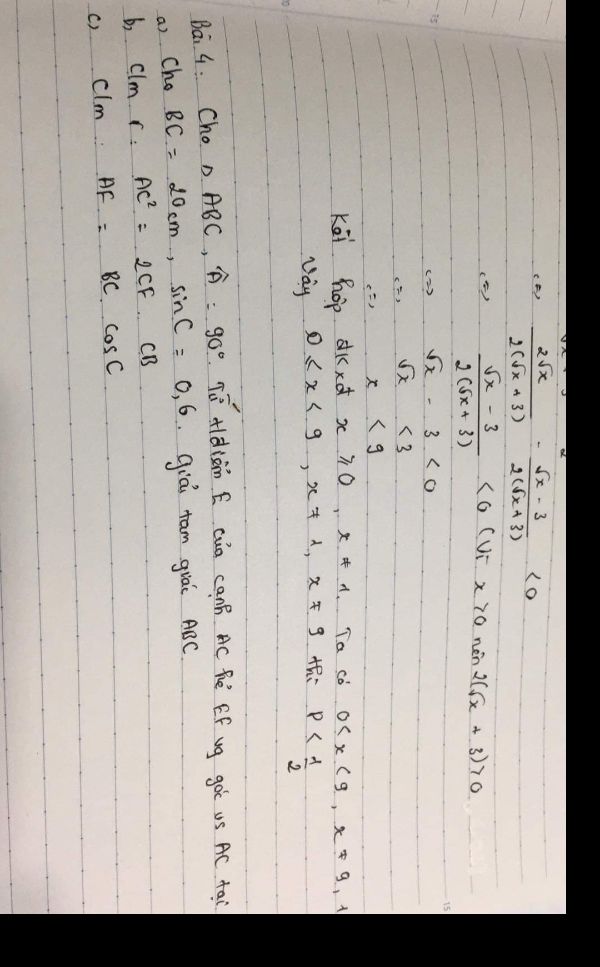 √x + 3 2
<=> 2√x / 2(√x + 3) - √x - 3 / 2(√x + 3) < 0
<=> √x - 3 / 2(√x + 3) < 0 (Vì x ⩾ 0 nên 2(√x + 3) > 0
<=> √x - 3 < 0
<=> √x < 3
<=> x < 9
Kết hợp đkxđ x ⩾ 0, x ≠ 1. Ta có 0 < x < 9, x ≠ 9, 1
Vậy 0 < x < 9, x ≠ 1, x ≠ 9 thì P < 1/2
Bài 4: Cho Δ ABC, Â = 90°. Từ t/điểm E của cạnh AC kẻ EF vg góc vs AC tại
a) Cho BC = 20cm, sinC = 0,6. Giải tam giác ABC
b, C/m r: AC² = 2CF. CB
c, C/m: AF = BC cosC